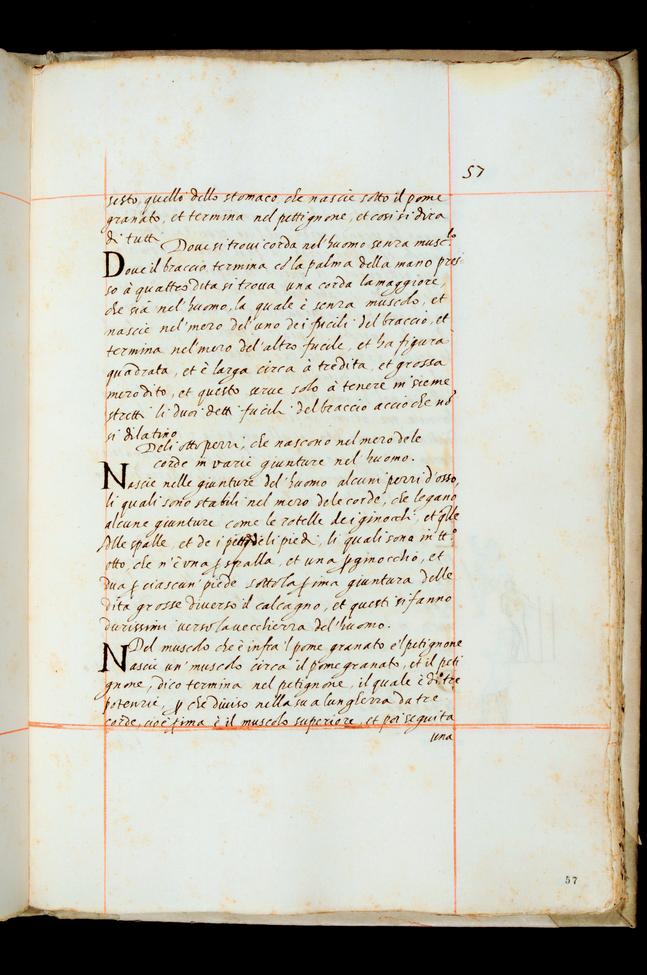 57
sesto, quello dello stomaco, che nascie sotto il pome
granato, et termina nel pettignone, et cosi si dira
di tutti.
Dove si trovi corda nel huomo senza musc.lo
Dove il braccio termina cō la palma della mano pres
so à quattro dita si trova una corda la maggiore,
che sia nel huomo, la quale è senza muscolo, et
nascie nel mezo del'uno dei fucili del braccio, et
termina nel mezo del'altro fucile, et ha figura
quadrata, et è larga circa à tre dita, et grossa
mezo dito, et questo serve solo à tenere insieme
stretti li duoi detti fucili del braccio accio che nō
si dilatino
Deli otto pezzi, che nascono nel mezo dele
corde in varie giunture nel huomo.
Nascie nelle giunture del'huomo alcuni pezzi d'osso,
li quali sono stabili nel mezo dele corde, che legano
alcune giunture come le rotelle dei ginochi, et q̄lle
delle spalle, et de i piedi, li quali sono in tt.o
otto, che n'è una ꝑ spalla, et una ꝑ ginocchio, et
dua ꝑ ciascun' piede sotto la ꝑima giuntura delle
dita grosse di verso il calcagno, et questi si fanno
durissimi verso la vecchiezza del'huomo.
Del muscolo che è infra 'l pome granato e 'l petignone
Nascie un' muscolo circa il pome granato, et il peti
gnone, dico termina nel petignone, il quale è di tre
potenzie, ꝑ che diviso nella sua lunghezza da tre
corde, cioè ꝑima è il muscolo superiore, et poi seguita
una
57